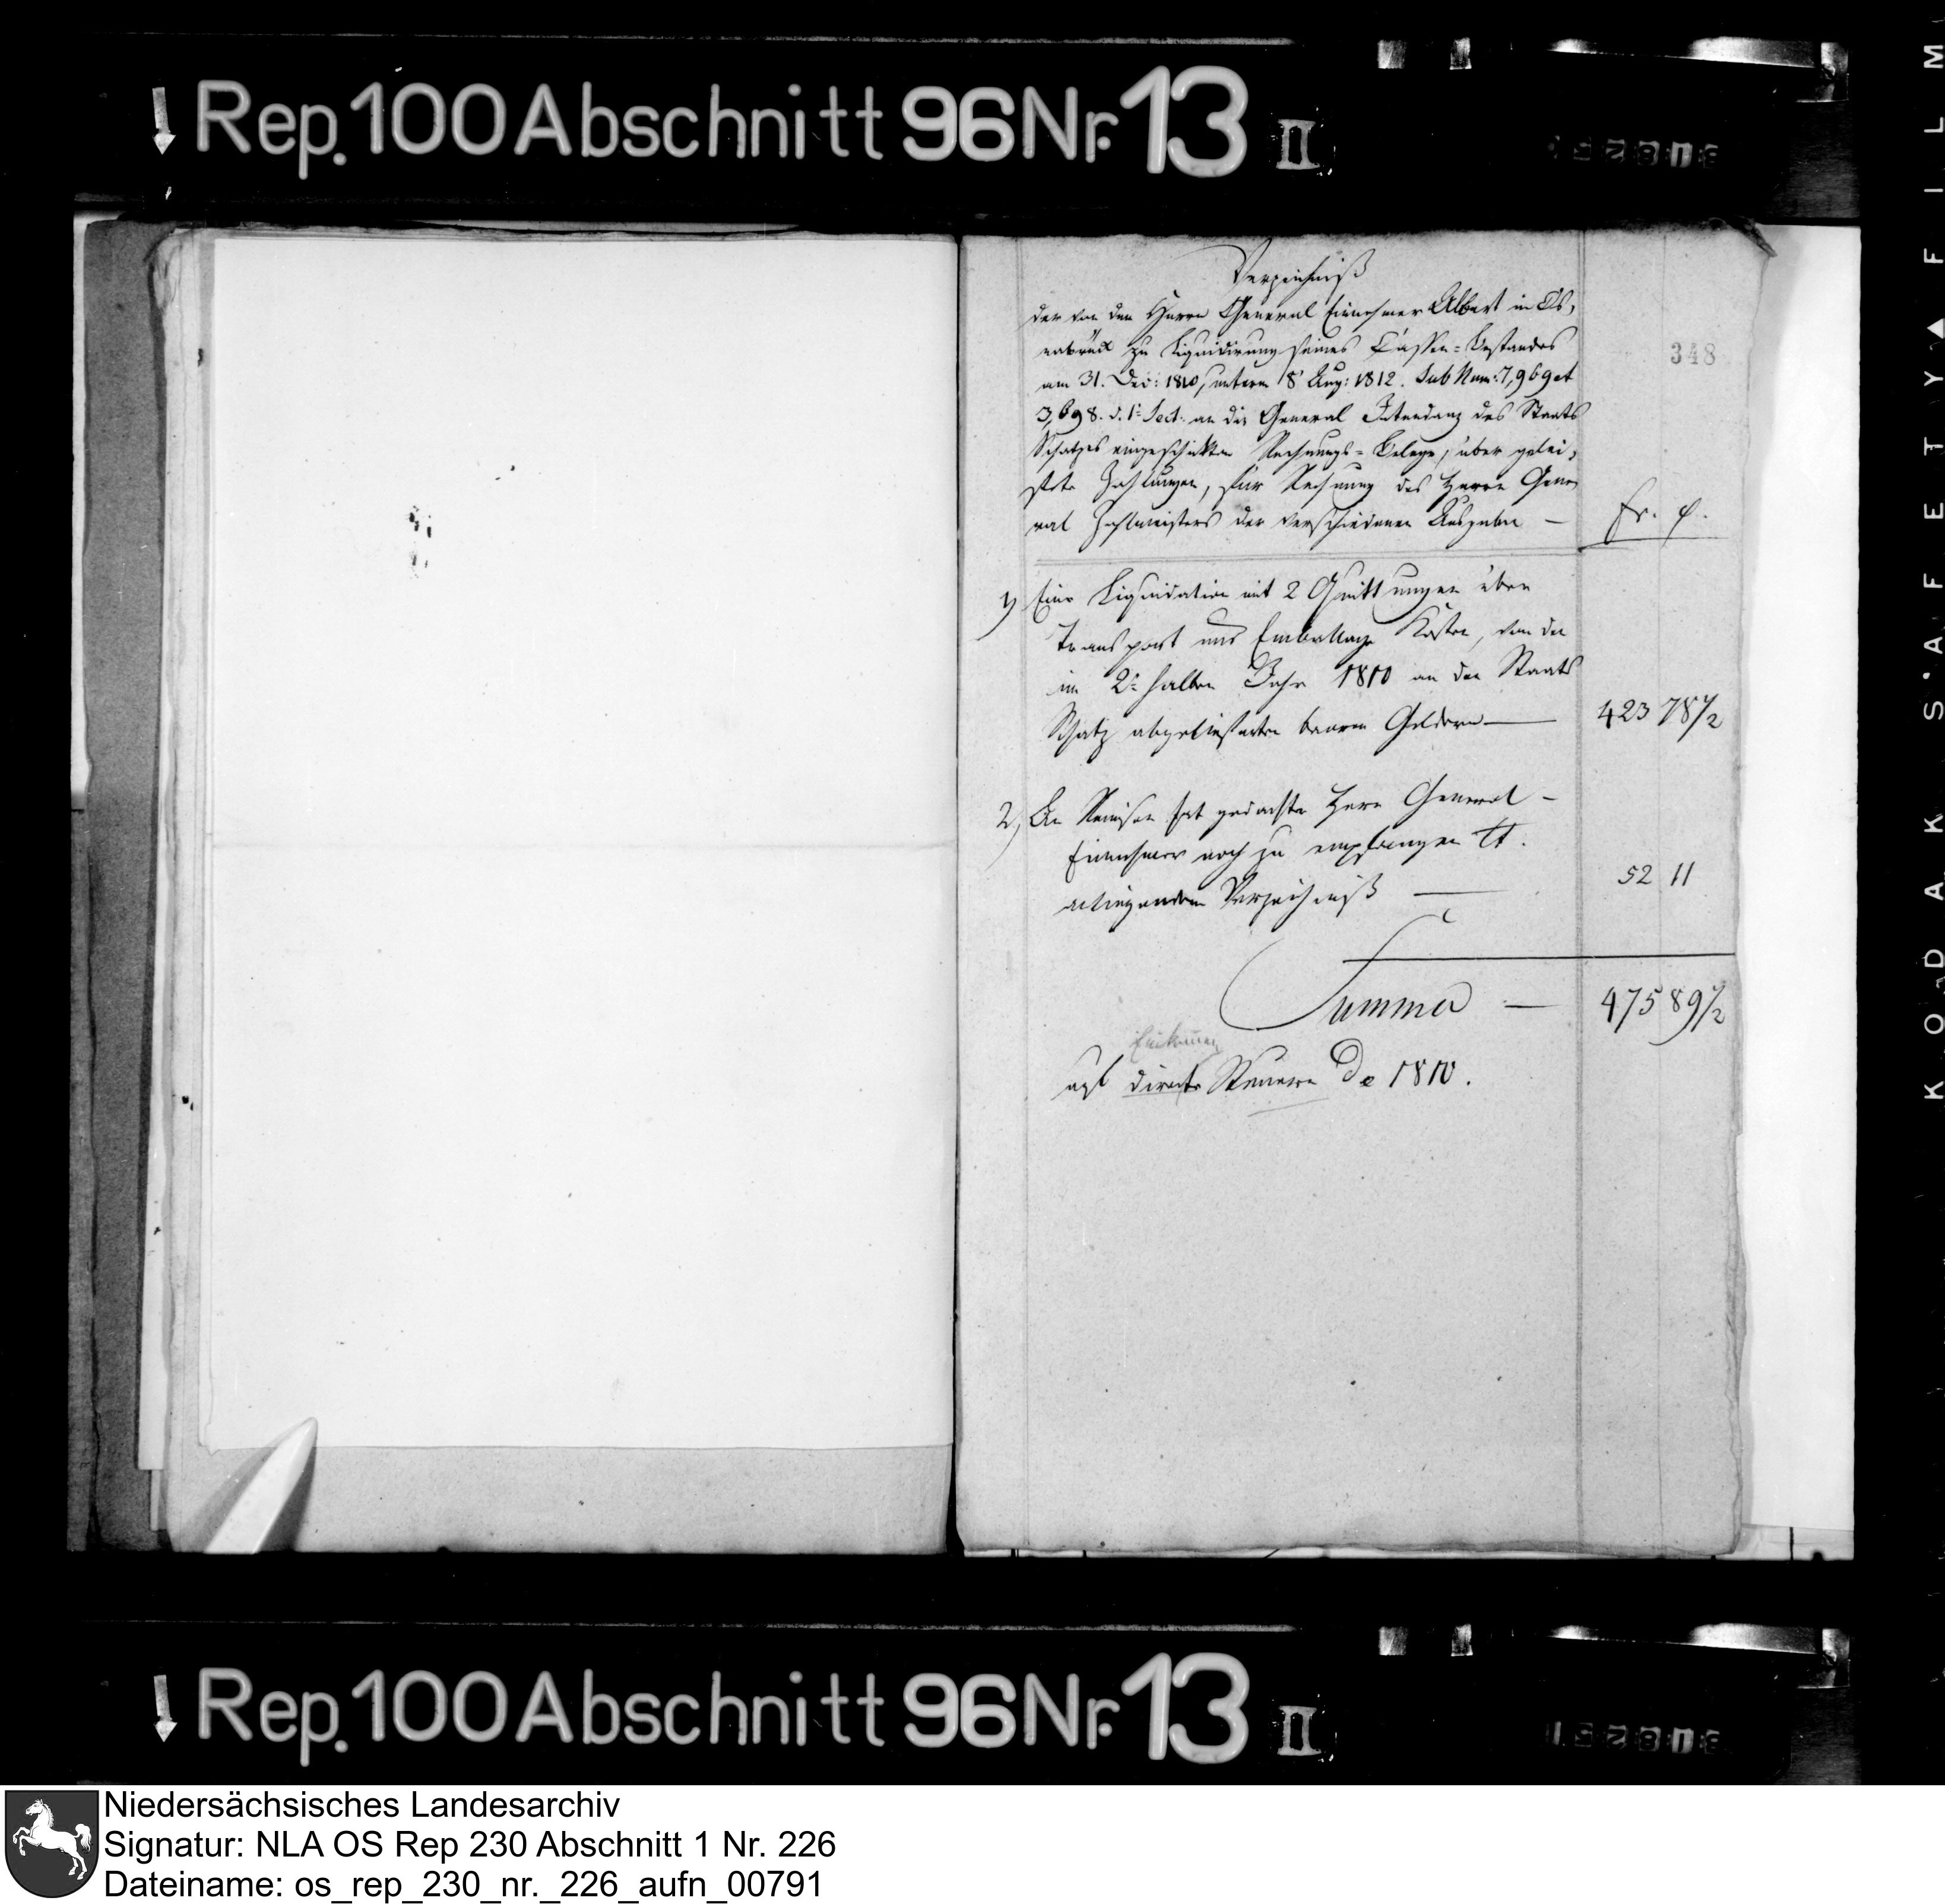 Rep. 100 Abschnitt 96 Nr. 13 II
Verzeichniß
348
der von dem Herrn General Einnehmer Albert in Os,
nabrück zu Liquidirung seines Cassen-Bestandes
am 31. Dec: 1810, unterm 8 Aug: 1812. Sub Num: 7,969 et
3,698. d. 1. Sect. an die General Intendanz des Staats
Schatzes eingeschickten Rechnungs-Belege, über gelei,
stete Zahlungen, für Rechnung des Herrn Gene
ral Zahlmeisters der verschiedenen Ausgaben —
Fr. C.
1) Eine Liquidation mit 2 Quittungen über
Transport und Emballage Kosten, von den
im 2. halben Jahr 1810 an den Staats
Schatz abgelieferten baaren Geldern — 423 78 1/2
2) An Remisen hat gedachter Herr General-
Einnehmer noch zu empfangen lt.
anliegendem Verzeichniß — 52 11
Summa — 475 89 1/2
directe Steuern de 1810.
Rep. 100 Abschnitt 96 Nr. 13 II
KODAK SAFETY FILM
Niedersächsisches Landesarchiv
Signatur: NLA OS Rep 230 Abschnitt 1 Nr. 226
Dateiname: os_rep_230_nr._226_aufn_00791